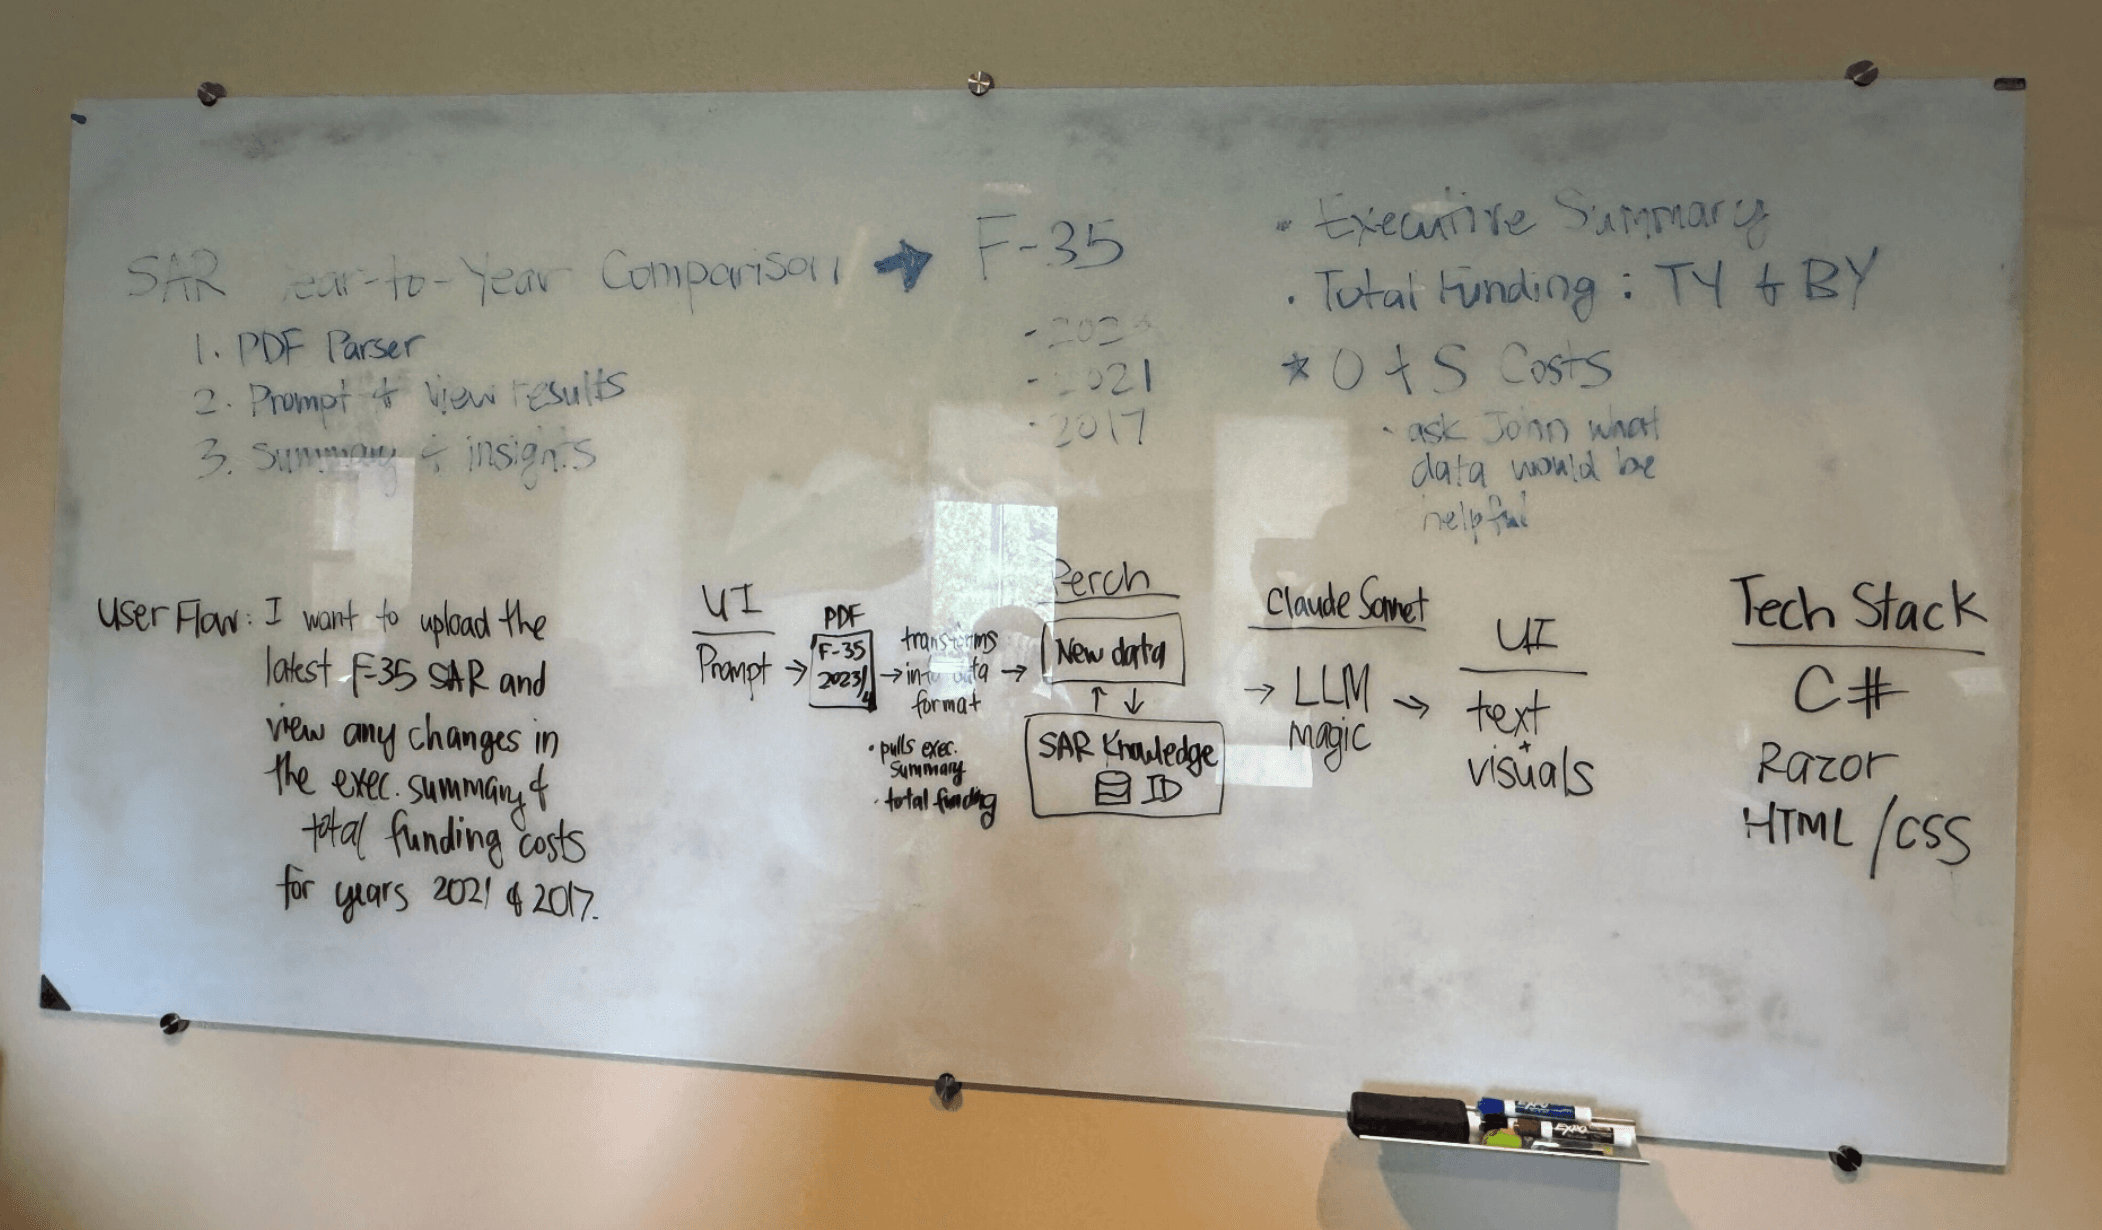 SAR Year-to-Year Comparison → F-35
1. PDF Parser
2. Prompt + View results
3. Summary & insights
- 2021
- 2017
• Executive Summary
• Total Funding : TY & BY
* O & S Costs
• ask John what
data would be
helpful
User Flow: I want to upload the
latest F-35 SAR and
view any changes in
the exec. summary &
total funding costs
for years 2021 & 2017.
UI
Prompt →
PDF
F-35
2023/4
→ transforms
into data
format →
• pulls exec.
summary
• total funding
Perch
New data
↑ ↓
SAR Knowledge
ID
→
Claude Sonnet
LLM
magic
→
UI
text
+
visuals
Tech Stack
C#
Razor
HTML/CSS
EXPO
EXPO